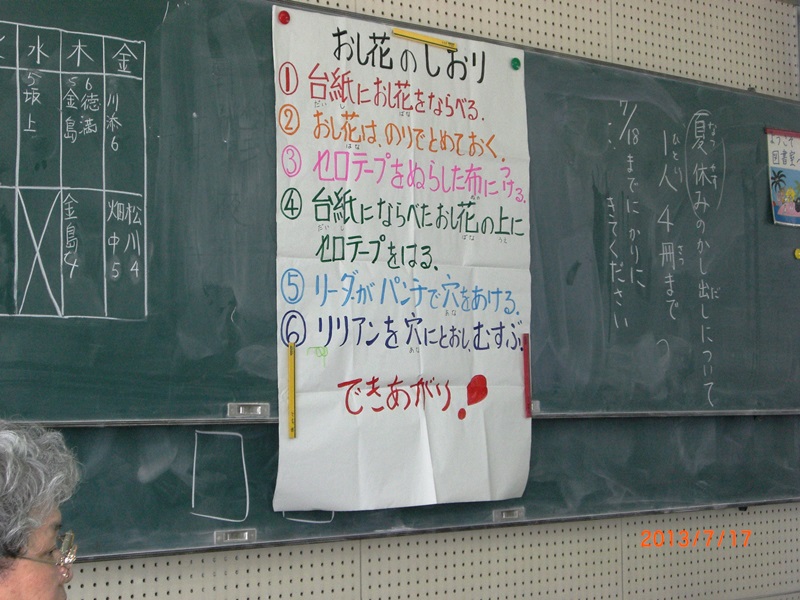 水 木 金
5坂上
5金島
6徳満
川添6
金島4
畑中5
松川4
おし花のしおり
① 台紙におし花をならべる。
だいし ばな
② おし花は、のりでとめておく。
はな
③ セロテープをぬらした布につける。
④ 台紙にならべたおし花の上に
だいし ばな うえ
セロテープをはる。
⑤ リーダーがパンチで穴をあける。
あな
⑥ リリアンを穴にとおし、むすぶ。
あな
できあがり!
夏休みのかし出しについて
なつやす だ
1人4冊まで
ひとり さつ
7/18までにかりに
きてください
ようこそ
図書室
2013/7/17